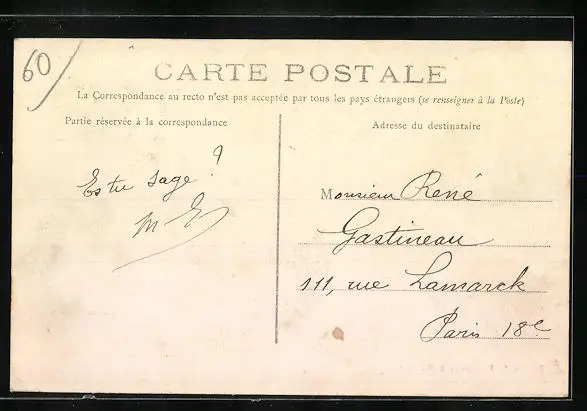 60/
CARTE POSTALE
La Correspondance au recto n'est pas acceptée par tous les pays étrangers (se renseigner à la Poste)
Partie réservée à la correspondance
Es tu sage ?
M E
Adresse du destinataire
Monsieur René
Gastineau
111, rue Lamarck
Paris 18e